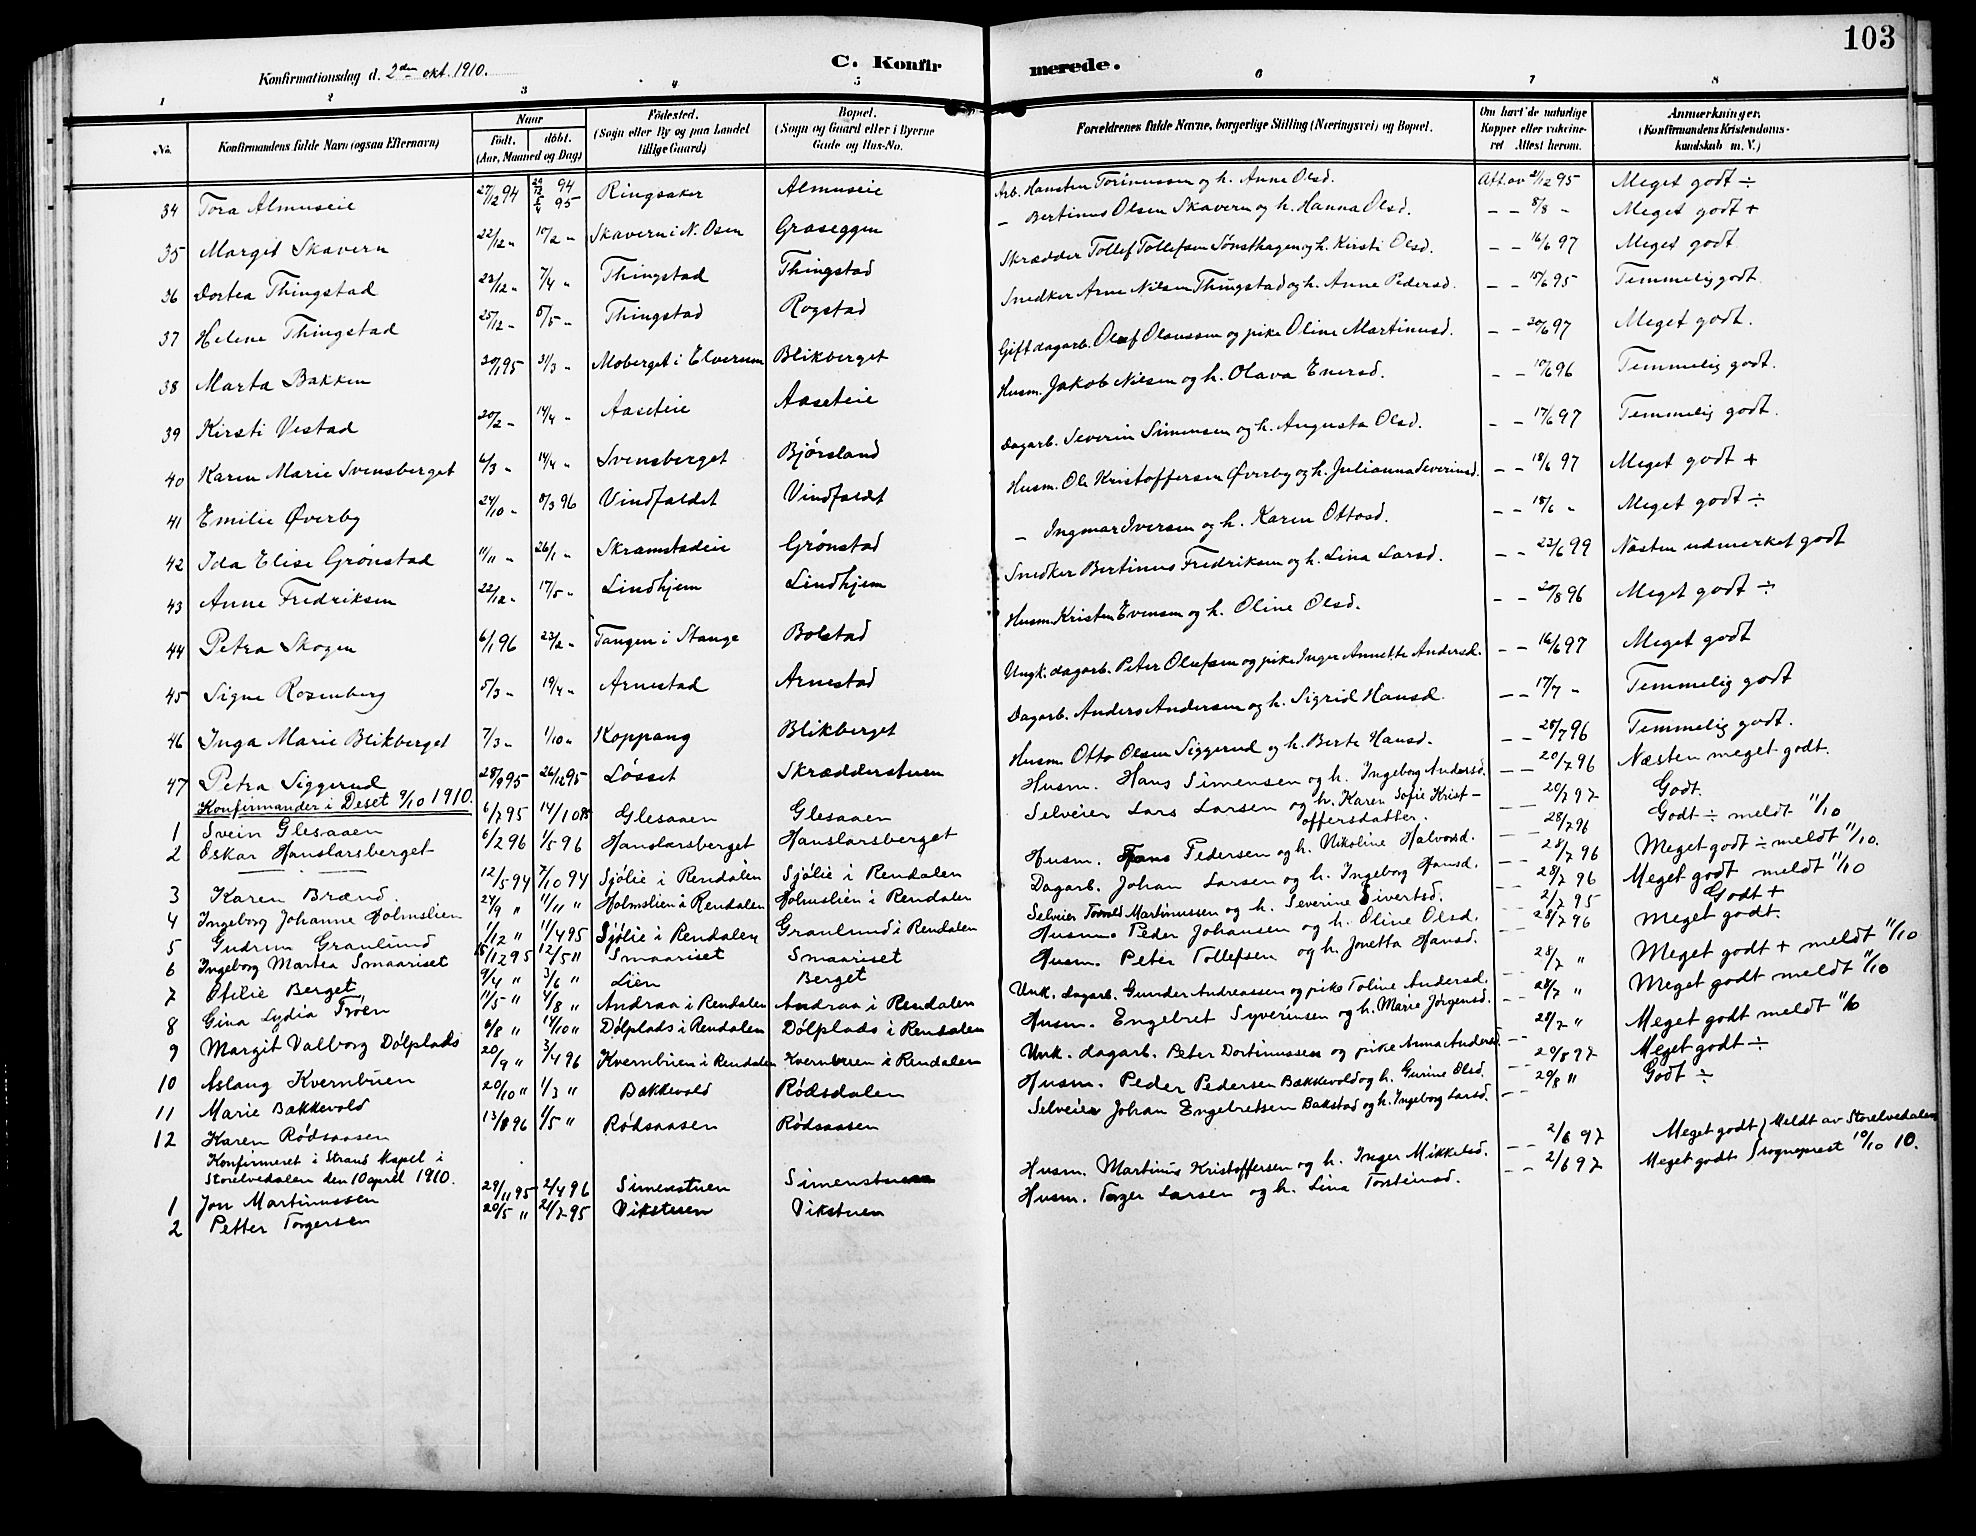 103
Konfirmationsdag d. 2den okt. 1910.
C. Konfirmerede.
1 2 3 4 5 6 7 8
No.
Konfirmandens fulde Navn (ogsaa Efternavn)
Naar
født. døbt.
(Aar, Maaned og Dag)
Fødested.
(Sogn eller By og paa Landet tillige Gaard)
Bopæl.
(Sogn og Gaard eller i Byerne Gade og Hus-No.
Forældrenes fulde Navne, borgerlige Stilling (Næringsvei) og Bopæl.
Om havt de naturlige Kopper eller vakcineret. Attest herom.
Anmærkninger.
(Konfirmandens Kristendomskundskab m. V.)
34 Tora Almuseie 27/12 94 Ringsaker Almuseie Arb. Hansten Torinussen og h. Anne Olsd. Att. av 21/12 95 Meget godt ÷
35 Margit Skavern 22/12 „ 10/2 „ Skavern i N. Osen Graseggen – Bertinus Olsen Skavern og h. Hanna Olsd. – – 8/8 – Meget godt +
36 Dortea Thingstad 23/12 „ 7/4 „ Thingstad Thingstad Skrædder Tollef Tollefsen Sønsthagen og h. Kirsti Olsd. – – 16/6 97 Meget godt
37 Helene Thingstad 25/12 „ 5/5 „ Thingstad Rogstad Snedker Arne Nilsen Thingstad og h. Anne Pedersd. – – 15/6 95 Temmelig godt
38 Marta Bakken 20/1 95 31/3 „ Moberget i Elverum Blikberget Gift dagarb. Oluf Olaussen og pike Oline Martinusd. – – 20/6 97 Meget godt.
39 Kirsti Vestad 20/2 „ 14/4 „ Aaseteie Aaseteie Husm. Jakob Nilsen og h. Olava Enersd. – – 10/6 96 Temmelig godt.
40 Karen Marie Svensberget 6/3 „ 14/4 „ Svensberget Bjørsland Dagarb. Severin Simensen og h. Augusta Olsd. – – 17/6 97 Temmelig godt.
41 Emilie Øverby 24/10 „ 8/3 96 Vindfaldet Vindfaldet Husm. Ole Kristoffersen Øverby og h. Julianna Severinsd. – – 18/6 97 Meget godt +
42 Ida Elise Grønstad 11/11 „ 26/1 „ Skramstadeie Grønstad – Ingmar Iversen og h. Karen Ottosd. – – 18/6 „ Meget godt ÷
43 Anne Fredriksen 22/12 „ 17/5 „ Lindhjem Lindhjem Snedker Bertinus Fredriksen og h. Lina Larsd. – – 23/6 99 Næsten udmerket godt
44 Petra Skogen 6/1 96 23/2 „ Tangen i Stange Bolstad Husm. Kristen Evensen og h. Oline Olsd. – – 20/8 96 Meget godt ÷
45 Signe Rosenberg 5/3 „ 19/4 „ Arnestad Arnestad Ungk. dagarb. Peter Olufsen og pike Inger Annette Andersd. – – 16/6 97 Meget godt
46 Inga Marie Blikberget 7/3 „ 1/10 „ Koppang Blikberget Dagarb. Anders Andersen og h. Sigrid Hansd. – – 17/7 „ Temmelig godt
47 Petra Siggerud 28/9 95 26/12 95 Løsset Skrædderstuen Husm Otto Olsen Siggerud og h. Berte Hansd. – – 28/7 96 Temmelig godt.
Konfirmander i Deset 9/10 1910.
1 Svein Glesaaen 6/7 95 14/10 95 Glesaaen Glesaaen Husm. Hans Simensen og h. Ingeborg Andersd. – – 20/7 96 Næsten meget godt.
2 Oskar Hanslarsberget 6/2 96 1/5 96 Hanslarsberget Hanslarsberget Selveier Lars Larsen og h. Karen Sofie Kristoffersdatter. – – 20/7 97 Godt.
3 Karen Brænd 12/5 94 7/10 94 Sjølie i Rendalen Sjølie i Rendalen Husm. Hans Pedersen og h. Nikoline Halvorsd. – – 28/7 96 Godt ÷ meldt 11/10
4 Ingeborg Johanne Holmslien 24/9 „ 11/11 „ Holmslien i Rendalen Holmslien i Rendalen Dagarb. Johan Larsen og h. Ingeborg Hansd. – – 28/7 96 Meget godt ÷ meldt 11/10.
5 Gudrun Granlund 1/12 „ 11/4 95 Sjølie i Rendalen Granlund i Rendalen Selveier Torvald Martinussen og h. Severine Sivertsd. – – 28/7 96 Meget godt meldt 11/10
6 Ingeborg Martea Smaariset 15/12 95 12/5 „ Smaariset Smaariset Husm. Peder Johansen og h. Oline Olsd. – – 2/7 95 Godt +
7 Otilie Berget 9/4 „ 3/6 „ Lien Berget Husm. Peter Tollefsen og h. Jonetta Hansd. – – 28/7 96 Meget godt.
8 Gina Lydia Troen 11/5 „ 4/8 „ Andraa i Rendalen Andraa i Rendalen Unk. dagarb. Gunder Andreassen og pike Toline Andersd. 28/7 „ Meget godt + meldt 11/10
9 Margit Valborg Dølplads 6/8 „ 14/10 „ Dølplads i Rendalen Dølplads i Rendalen Husm. Engebret Syverinsen og h. Marie Jørgensd. – – 28/7 „ Meget godt meldt 11/10
10 Aslaug Kvernbuen 20/9 „ 3/4 96 Kvernbuen i Rendalen Kvernbuen i Rendalen Unk. dagarb. Peter Dortinussen og pike Anna Andersd. – – 28/7 „ Meget godt meldt 11/10
11 Marie Bakkevold 20/10 „ 1/3 „ Bakkevold Rødsdalen Husm. Peder Pedersen Bakkevold og h. Gurine Olsd. – – 29/8 97 Meget godt ÷
12 Karen Rødsaasen 13/8 96 1/5 „ Rødsaasen Rødsaasen Selveier Johan Engebretsen Bakstad og h. Ingeborg Larsd. – – 29/8 „ Godt ÷
Konfirmeret i Strand Kapel i
Storelvedalen den 10 april 1910.
1 Jon Martinussen 29/11 95 2/4 96 Simenstuen Simenstuen Husm. Martinus Kristoffersen og h. Inger Mikkelsd. – – 2/6 97 Meget godt } Meldt av Storelvedalens
2 Petter Torgersen 20/5 „ 21/7 95 Vikstuen Vikstuen Husm. Torger Larsen og h. Lina Torstensd. – – 2/6 97 Meget godt. Sogneprest 10/10 10.